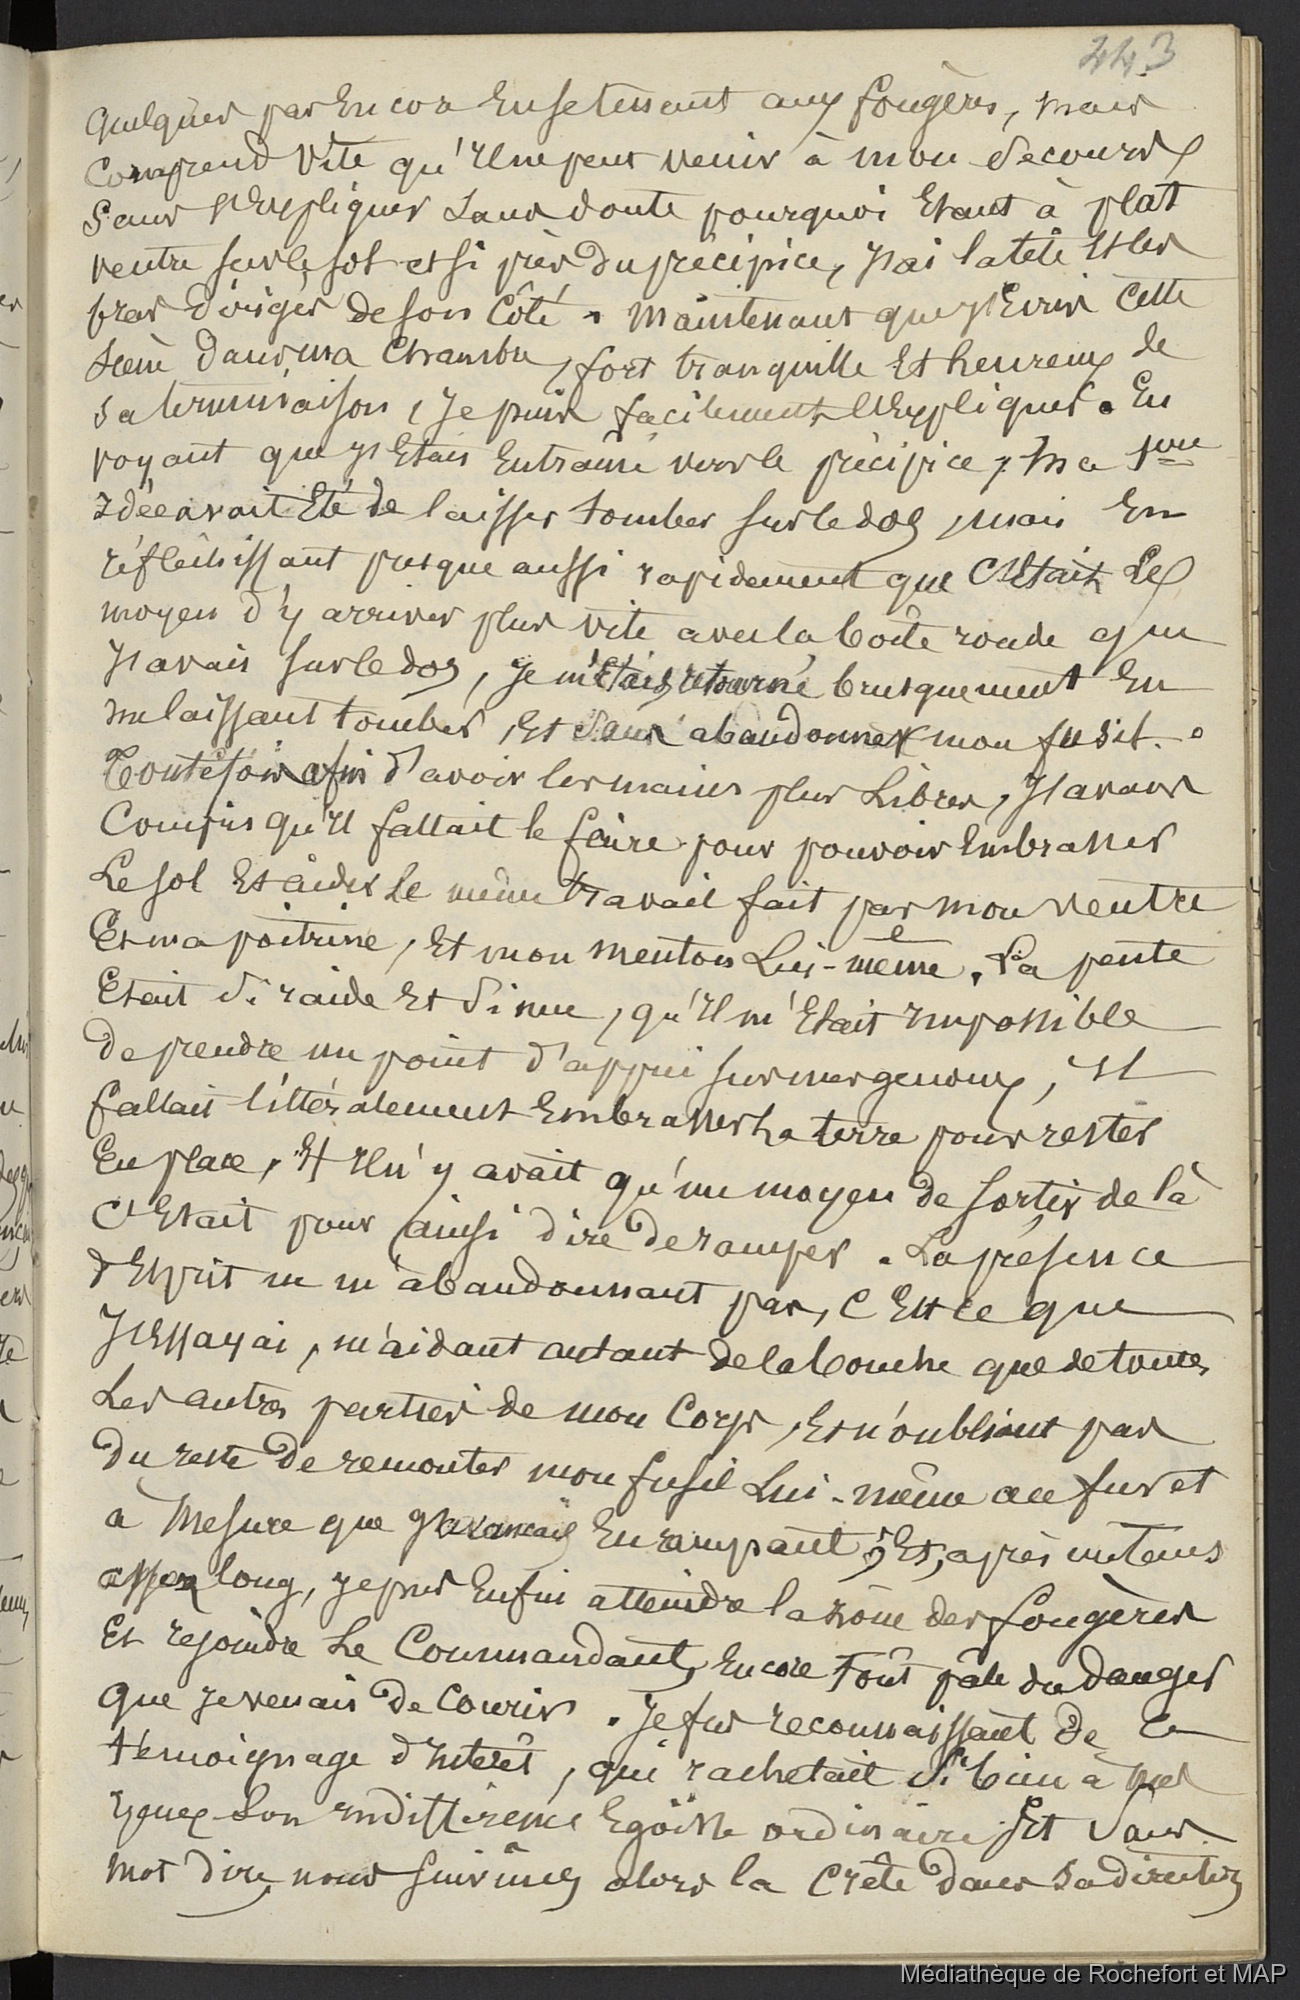 443
quelques pas encor en se tenant aux fougères, mais
comprend vite qu'il ne peut venir à mon secours
sans s'expliquer sans doute pourquoi étant à plat
ventre sur le sol et si près du précipice, j'ai la tête et les
bras dirigés de son côté. Maintenant que j'écris cette
scène dans ma chambre, fort tranquille et heureux de
sa terminaison, je puis facilement l'expliquer. En
voyant que j'étais entraîné vers le précipice, ma 1ère
idée avait été de laisser tomber sur le dos, mais en
réfléchissant presque aussi rapidement que c'était le
moyen d'y arriver plus vite avec la boîte ronde que
j'avais sur le dos, je m'étais retourné brusquement en
me laissant tomber, et sans abandonner mon fusil.
Toutefois afin d'avoir les mains plus libres, j'avais
compris qu'il fallait le faire pour pouvoir embrasser
le sol et aider le même travail fait par mon ventre
et ma poitrine, et mon menton lui-même. La pente
était si raide et si nue, qu'il m'était impossible
de prendre un point d'appui sur mes genoux, il
fallait littéralement embrasser la terre pour rester
en place, et il n'y avait qu'un moyen de sortir de là
c'était pour ainsi dire de ramper. La présence
d'esprit ne m'abandonnant pas, c'est ce que
j'essayai, m'aidant autant de la bouche que de toutes
les autres parties de mon corps, et n'oubliant pas
du reste de remonter mon fusil lui-même au fur et
à mesure que j'avançais en rampant, et, après un tems
assez long, je pus enfin atteindre la zône des fougères
et rejoindre le Commandant, encore tout pâle du danger
que je venais de courir. Je fus reconnaissant de ce
témoignage d'intérêt, qui rachetait si bien à mes
yeux son indifférence égoïste ordinaire, et sans
mot dire, nous suivîmes alors la crête dans sa direction
Médiathèque de Rochefort et MAP